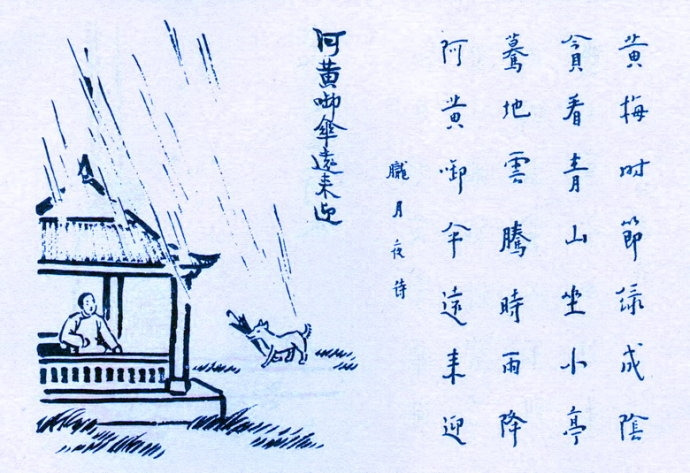 黄梅时節緑成陰
貪看青山坐小亭
驀地雲騰時雨降
阿黄啣伞遠来迎
朧月夜詩
阿黄啣傘遠来迎